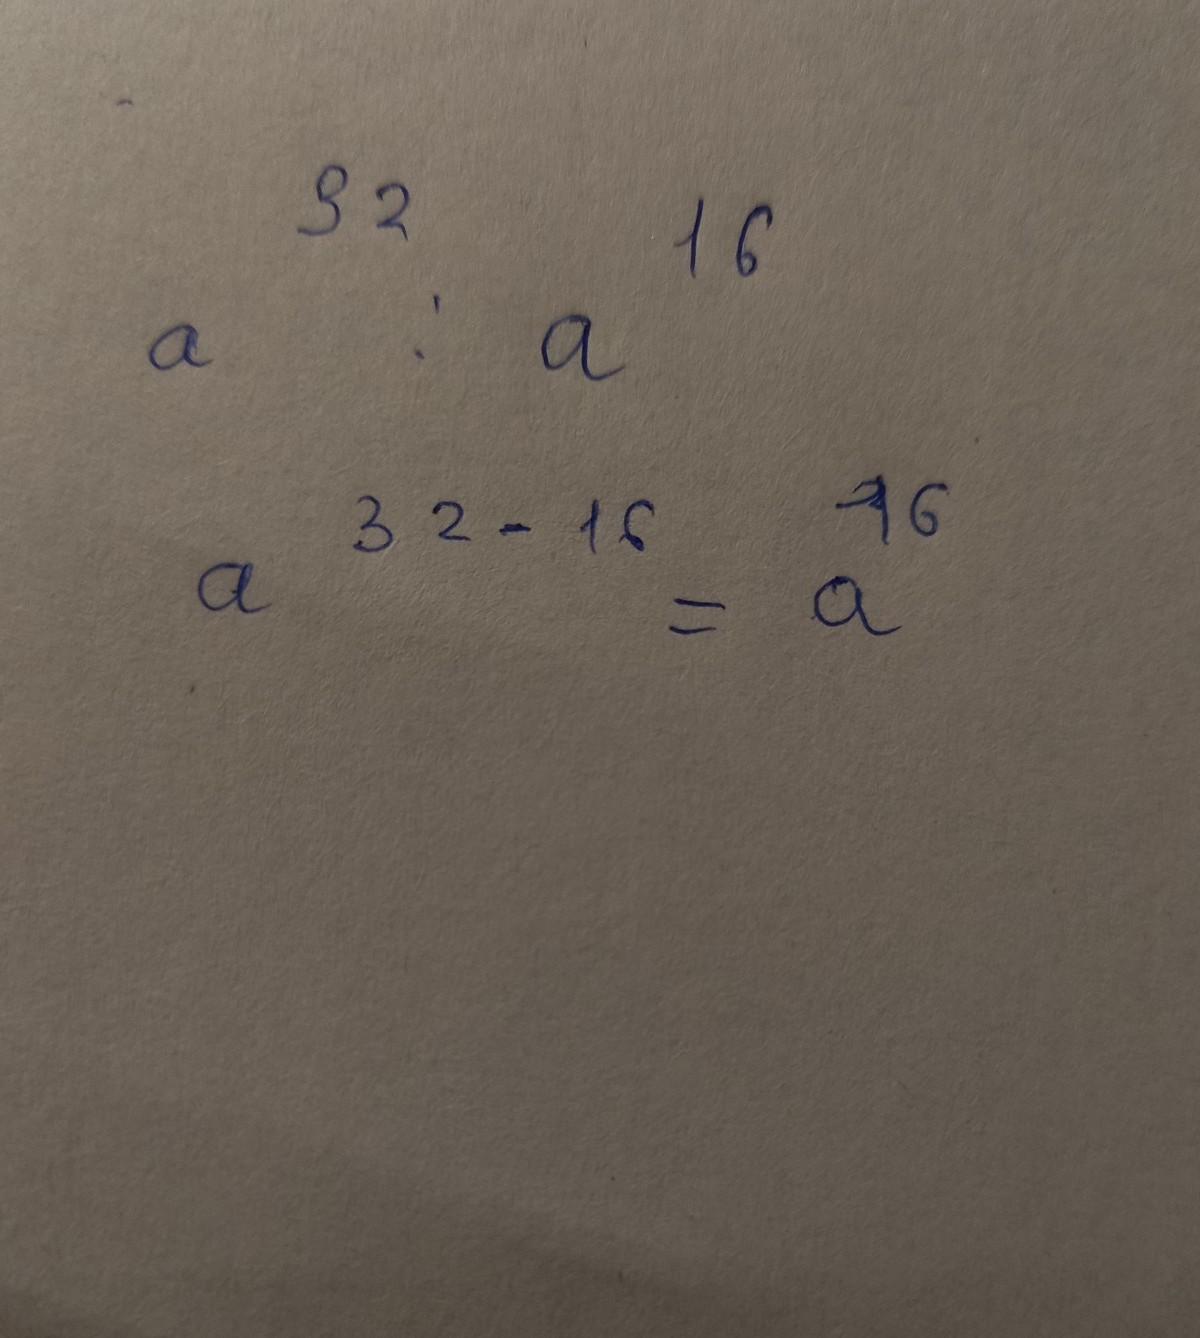 a³² : a¹⁶
a³²⁻¹⁶ = a¹⁶